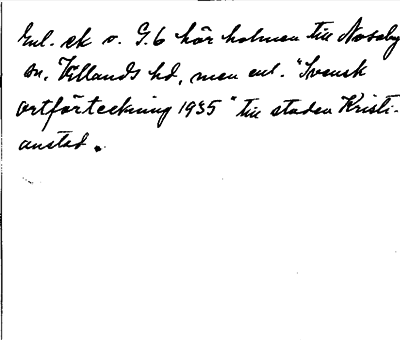 Enl. ek v. G.6 hör holmen till Nosaby
sn, Villands hd, men enl. "Svensk
ortförteckning 1935" till staden Kristi-
anstad.